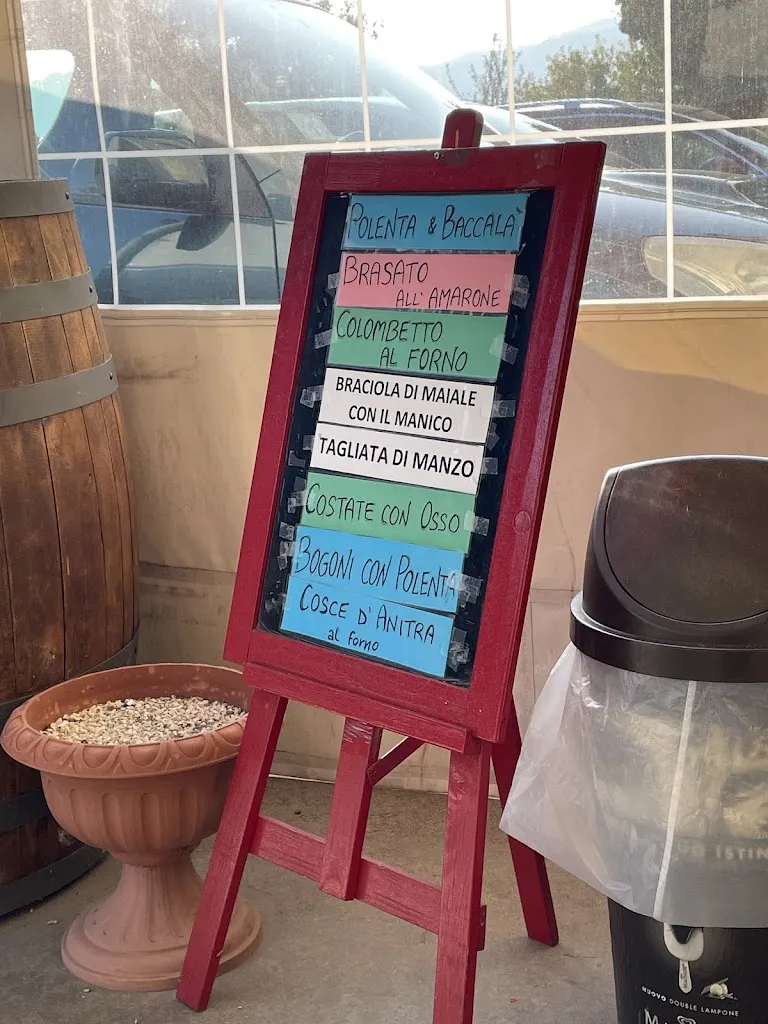 POLENTA & BACCALÀ
BRASATO
ALL'AMARONE
COLOMBETTO
AL FORNO
BRACIOLA DI MAIALE
CON IL MANICO
TAGLIATA DI MANZO
COSTATE CON OSSO
BOGONI CON POLENTA
COSCE D'ANITRA
al forno
NUOVO DOUBLE LAMPONE